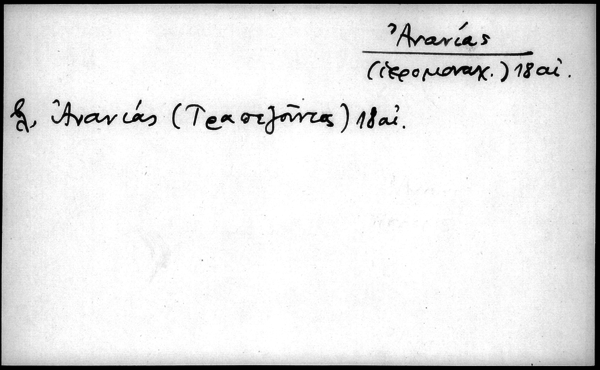 Ἀνανίας
(ἱερομοναχ.) 18 αἰ.
βλ. Ἀνανίας (Τραπεζοῦντος) 18 αἰ.